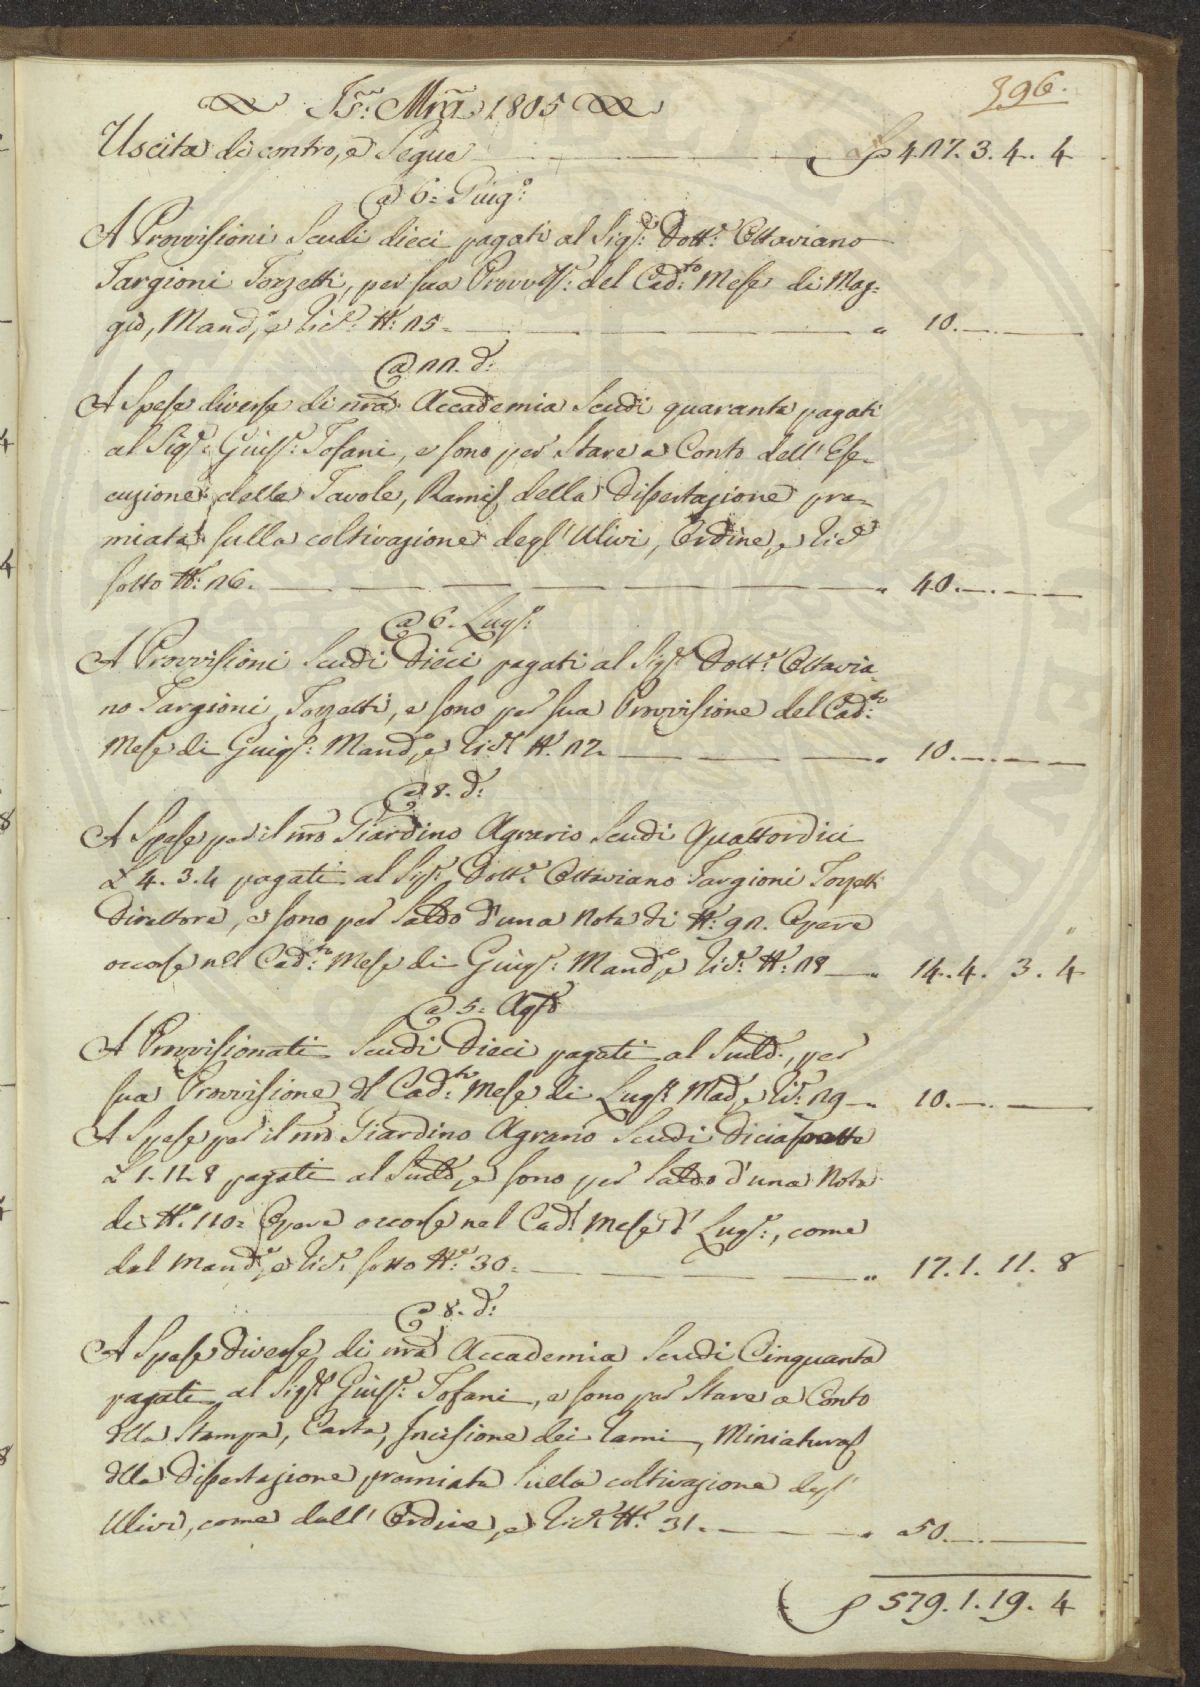 396.
Js: Mria 1805
Uscita di contro, e Segue — — — — 417. 3. 4. 4
@ 6= Giug.o
A Provvisioni Scudi dieci pagati al Sig.r Dott.r Ottaviano
Targioni Tozzetti, per sua Provv.e: del Cad.to Mese di Mag=
gio, Mand.o, e Ric.a N: 25= — — — — " 10. — —
@ 11. d:o
A Spese diverse di nra Accademia Scudi quaranta pagati
al Sig.r Giuse: Tofani, e sono per Stare a Conto dell'Ese=
cuzione della Tavole, Rami, della Dissertazione pre=
miata sulla coltivazione degl'Ulivi, Ordine, e Ric.a
sotto N: 26. — — — — — " 40. — — —
@ 6. Lug.o:
A Provvisioni Scudi Dieci pagati al Sig.r Dott.r Ottavia=
no Targioni, Tozzetti, e sono per sua Provvisione del Cad.to:
Mese di Giug.o: Mand.o, e Ric.a N: 27. — — — " 10. — — —
@ 8. d:o
A Spese per il nro Giardino Agrario Scudi Quattordici
£ 4. 3. 4 pagati al Sig.r: Dott.r Ottaviano Targioni Tozzetti
Direttore, e sono per Saldo d'una Nota di N: 91. Opere
occorse nel Cad.to: Mese di Giug.o: Mand.o, e Ric.a: N: 28 — " 14. 4. 3. 4
@ 5= Ag.to
A Provvisionati Scudi Dieci pagati al Sudd.o, per
sua Provvisione del Cad.to: Mese di Lug.o Mad.o, e Ric.a: 29 — " 10. — —
A Spese per il nro Giardino Agrario Scudi Diciassette
£ 1. 11. 8 pagati al Sudd.o, e sono per Saldo d'una Nota
di N.o 110= Opere occorse nel Cad.o Mese d' Lug.o:, come
dal Mand.o, e Ric.a: sotto N.o 30= — — — — " 17. 1. 11. 8
@ 8. d:o
A Spese Diverse di nra Accademia Scudi Cinquanta
pagati al Sig.r Giuse: Tofani, e sono per Stare a Conto
della Stampa, Carta, Incisione dei Rami, Miniatura
della Dissertazione premiata Sulla coltivazione degl'
Ulivi, come dall'Ordine, e Ric.a N: 31. — — — " 50. — —
579. 1. 19. 4